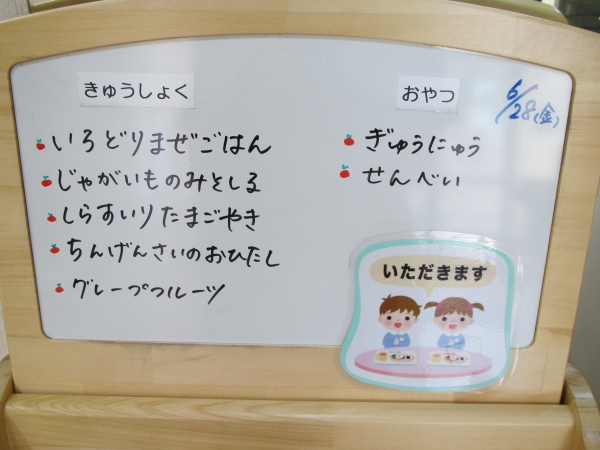 きゅうしょく
いろどりまぜごはん
じゃがいものみそしる
しらすいりたまごやき
ちんげんさいのおひたし
グレープフルーツ
おやつ
6/28(金)
ぎゅうにゅう
せんべい
いただきます